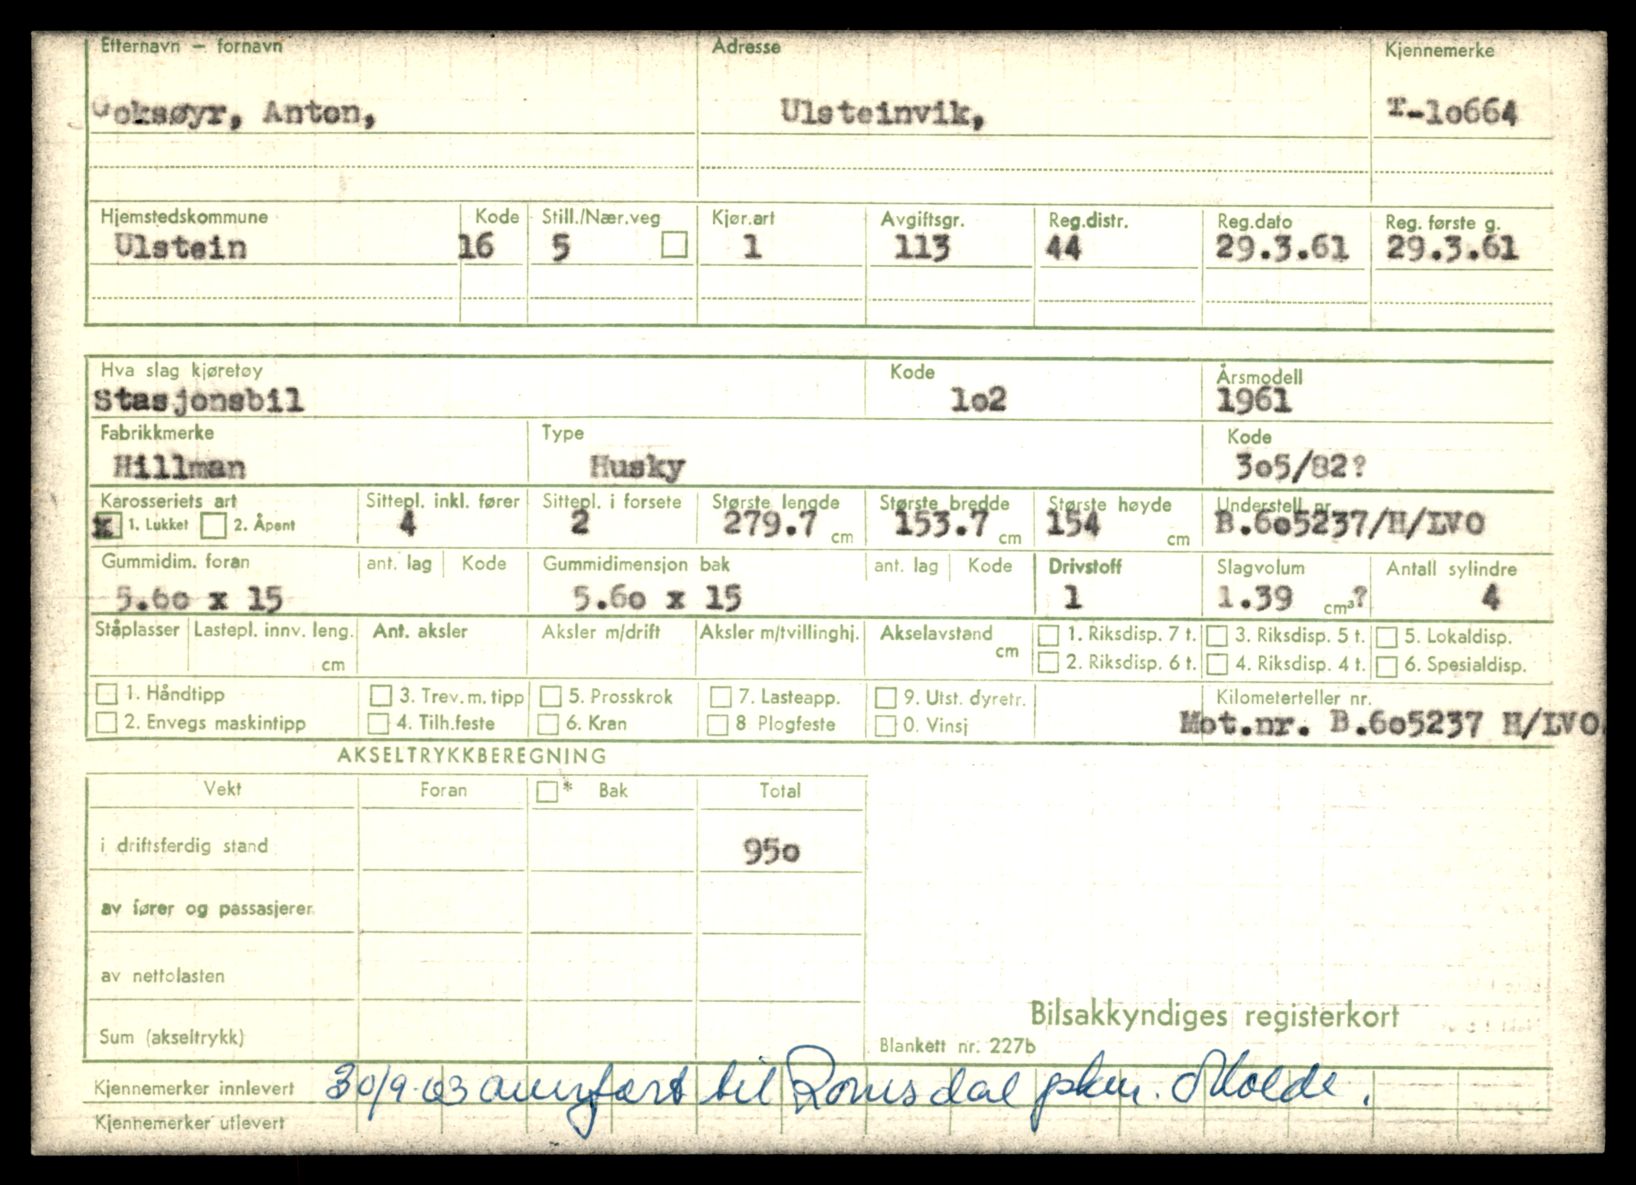 Efternavn — fornavn Adresse Kjennemerke
Goksøyr, Anton, Ulsteinvik, T-lo664
Hjemstedskommune Kode Still./Nær.veg Kjør.art Avgiftsgr. Reg.distr. Reg.dato Reg. første g.
Ulstein 16 5 1 113 44 29.3.61 29.3.61
Hva slag kjøretøy Kode Årsmodell
Stasjonsbil lo2 1961
Fabrikkmerke Type Kode
Hillman Husky 3o5/82?
Karosseriets art Sittepl. inkl. fører Sittepl. i forsete Største lengde Største bredde Største høyde Understell nr.
x 1. Lukket 2. Åpent 4 2 279.7 cm 153.7 cm 154 cm B.6o5237/H/LVO
Gummidim. foran ant. lag Kode Gummidimensjon bak ant. lag Kode Drivstoff Slagvolum Antall sylindre
5.6o x 15 5.6o x 15 1 1.39 cm³? 4
Ståplasser Lastepl. innv. leng. cm Ant. aksler Aksler m/drift Aksler m/tvillinghj. Akselavstand cm 1. Riksdisp. 7 t. 3. Riksdisp. 5 t. 5. Lokaldisp.
2. Riksdisp. 6 t. 4. Riksdisp. 4 t. 6. Spesialdisp.
1. Håndtipp 3. Trev.m.tipp 5. Prosskrok 7. Lasteapp. 9. Utst. dyretr. Kilometerteller nr.
2. Envegs maskintipp 4. Tilh.feste 6. Kran 8 Plogfeste 0. Vinsj Mot.nr. B.6o5237 H/LVO
AKSELTRYKKBEREGNING
Vekt Foran * Bak Total
i driftsferdig stand 95o
av fører og passasjerer
av nettolasten
Bilsakkyndiges registerkort
Sum (akseltrykk) Blankett nr. 227b
Kjennemerker innlevert 30/9-63 overført til Romsdal pkm. Molde.
Kjennemerker utlevert